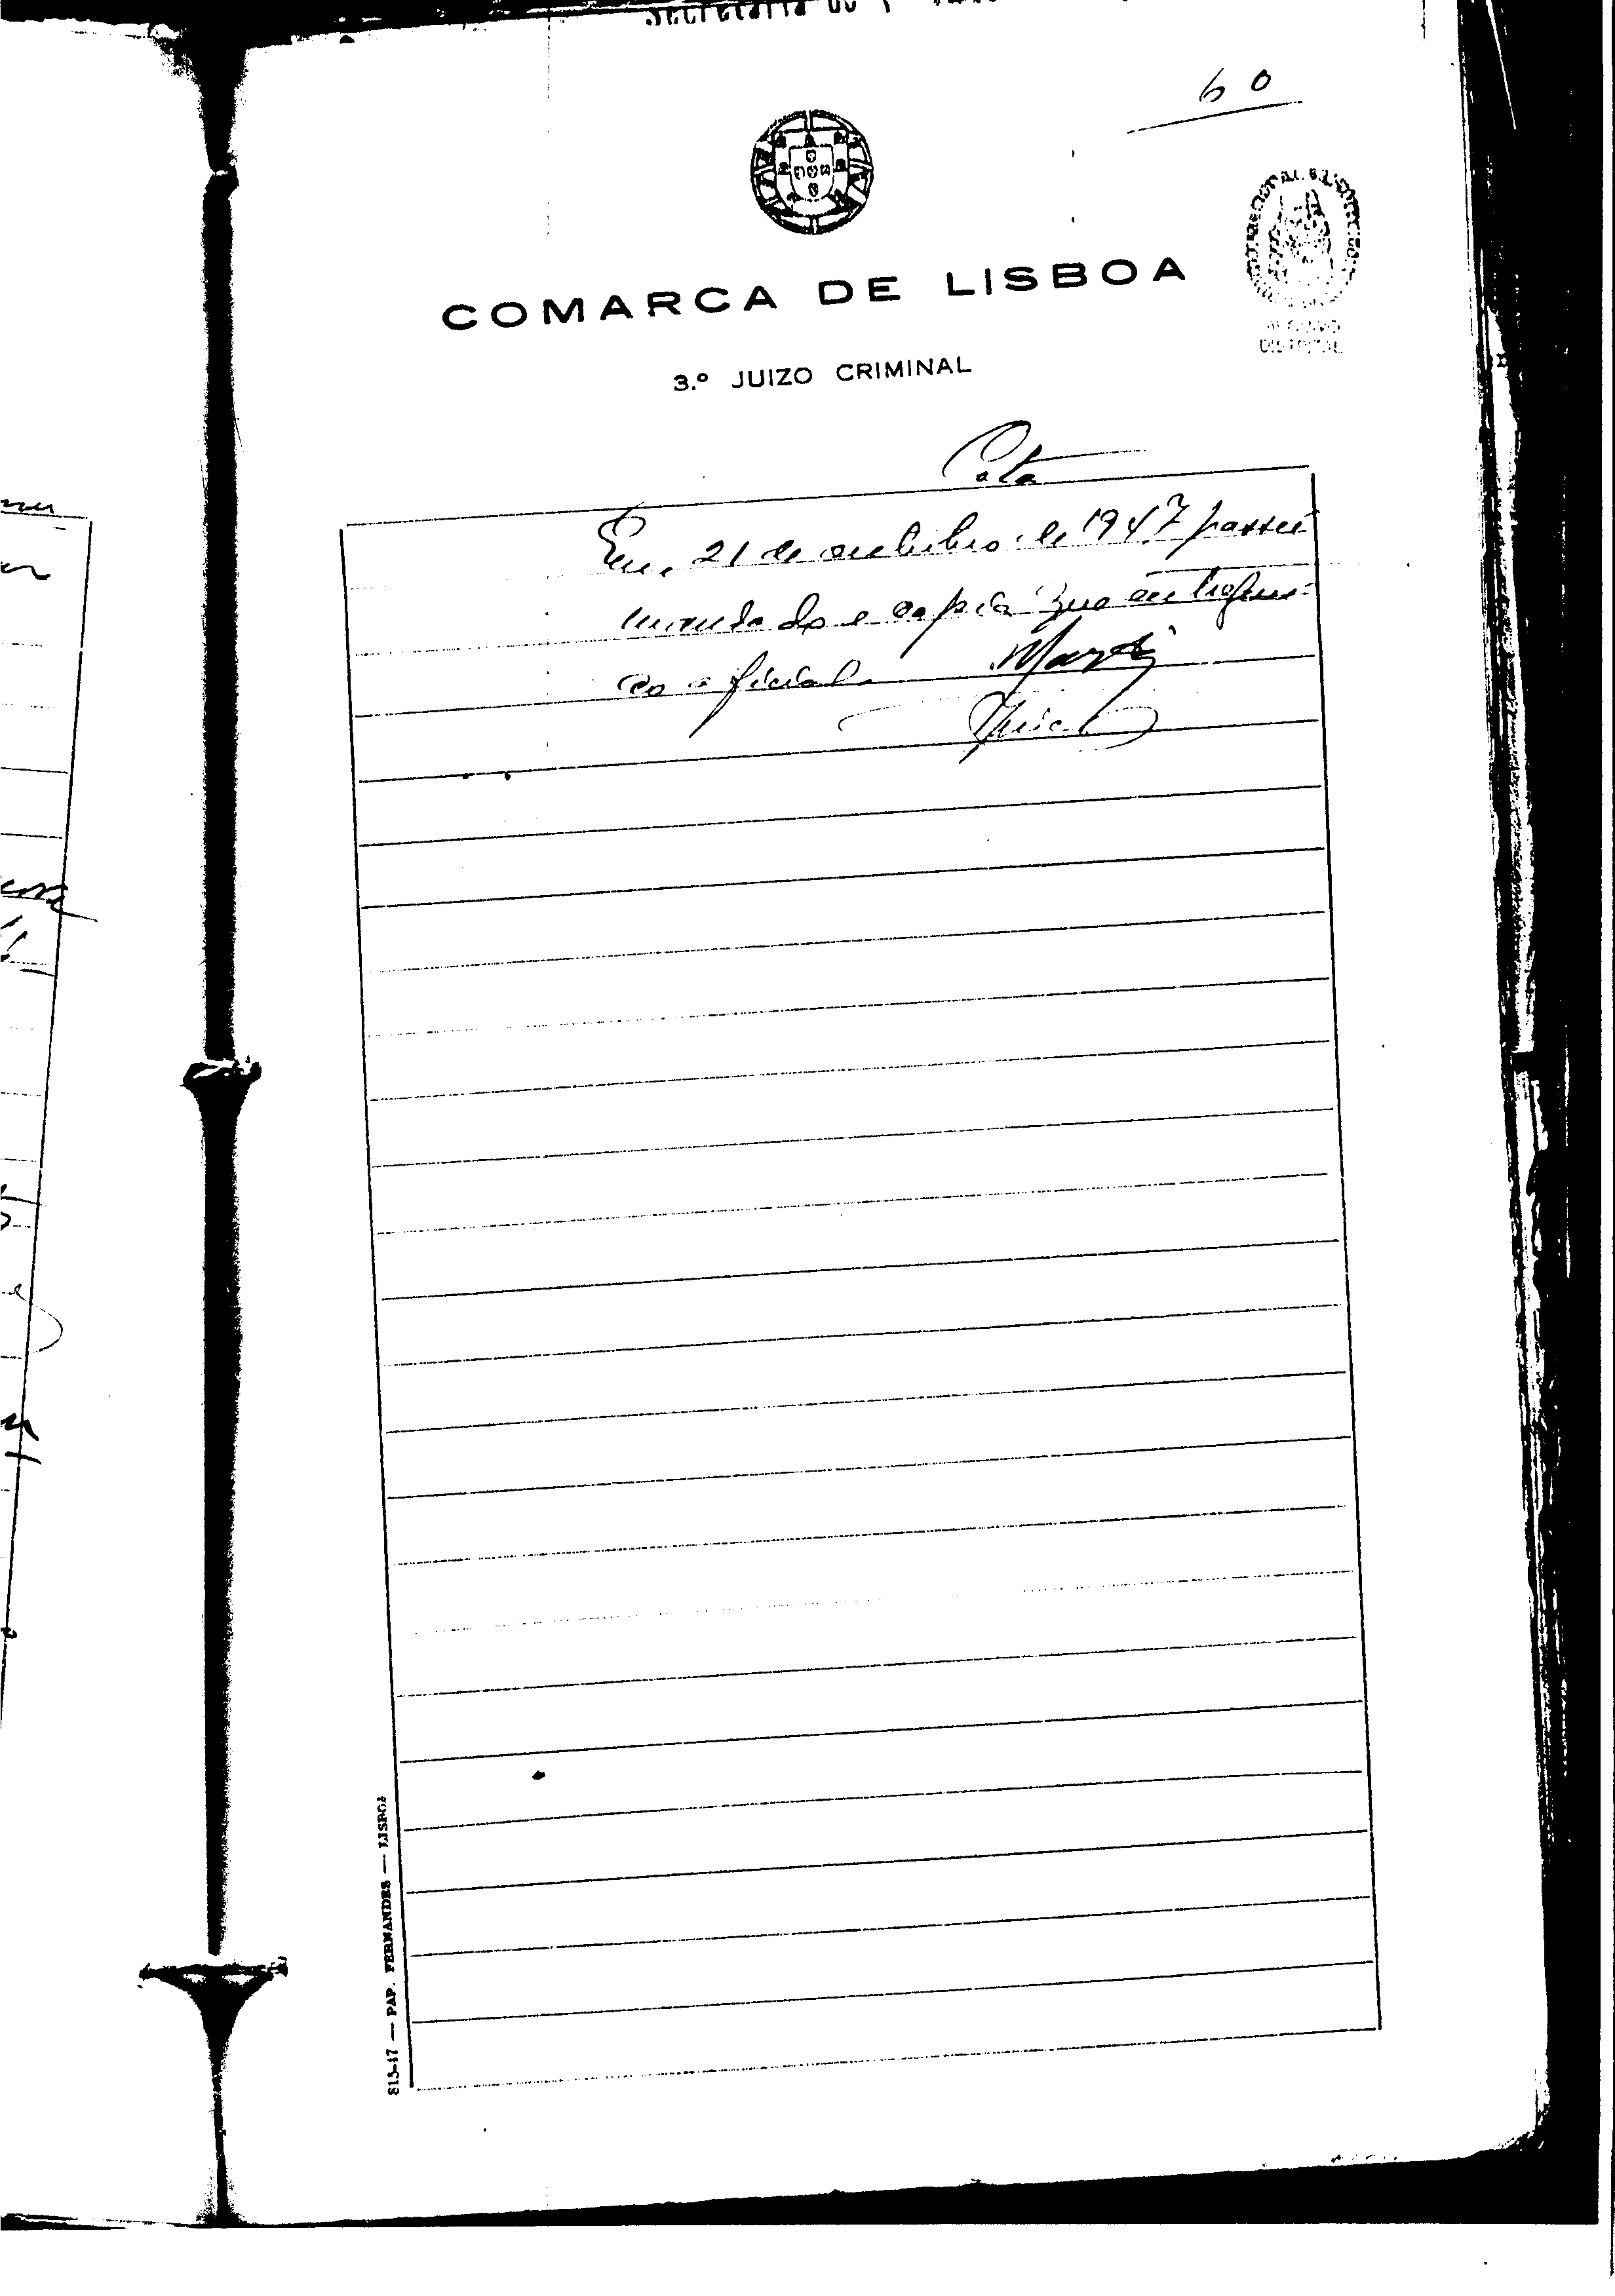 60
COMARCA DE LISBOA
3.º JUIZO CRIMINAL
Cota
Em, 21 de outubro de 1947 passei
mandado e copia que entreguei
ao oficial.
815-47 — PAP. FERNANDES — LISBOA